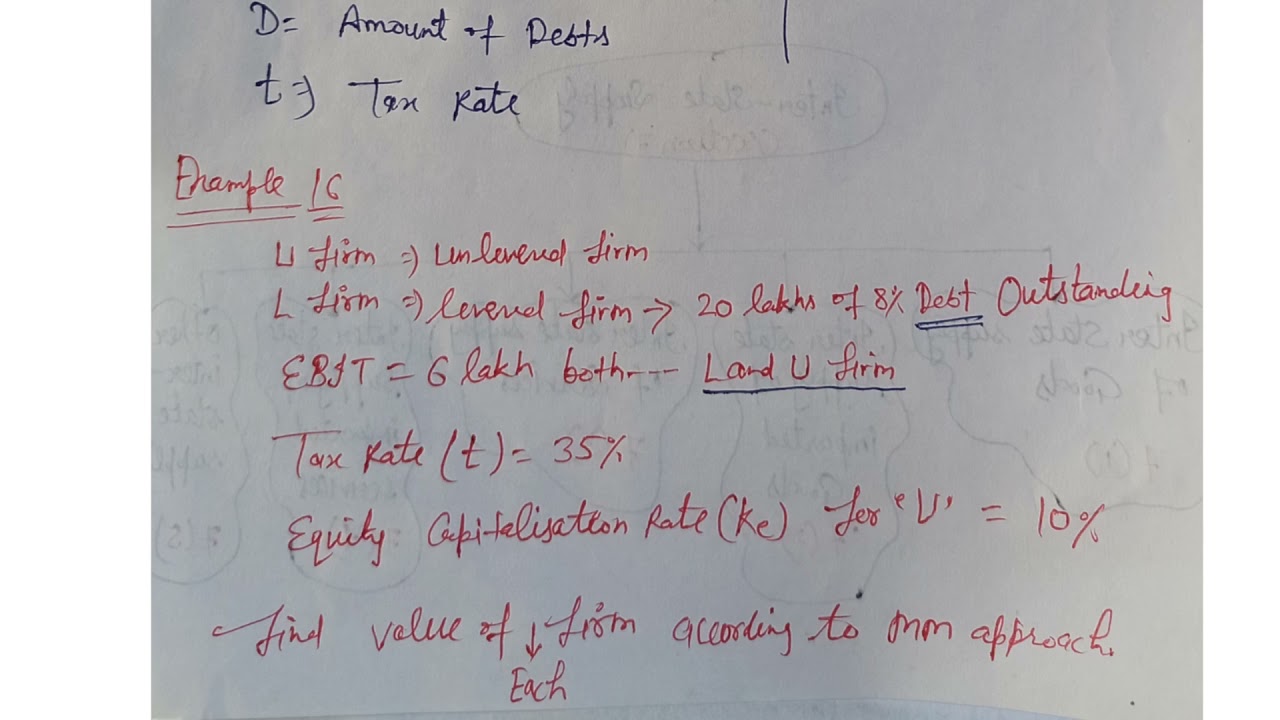 D= Amount of Debts
t⇒ Tax Rate
Example 16
U firm ⇒ Unlevered firm
L firm ⇒ levered firm → 20 lakhs of 8% Debt Outstanding
EBIT = 6 lakh both--- L and U firm
Tax Rate (t) = 35%
Equity Capitalisation Rate (Ke) for 'U' = 10%
find value of ↓ firm according to mm approach.
Each